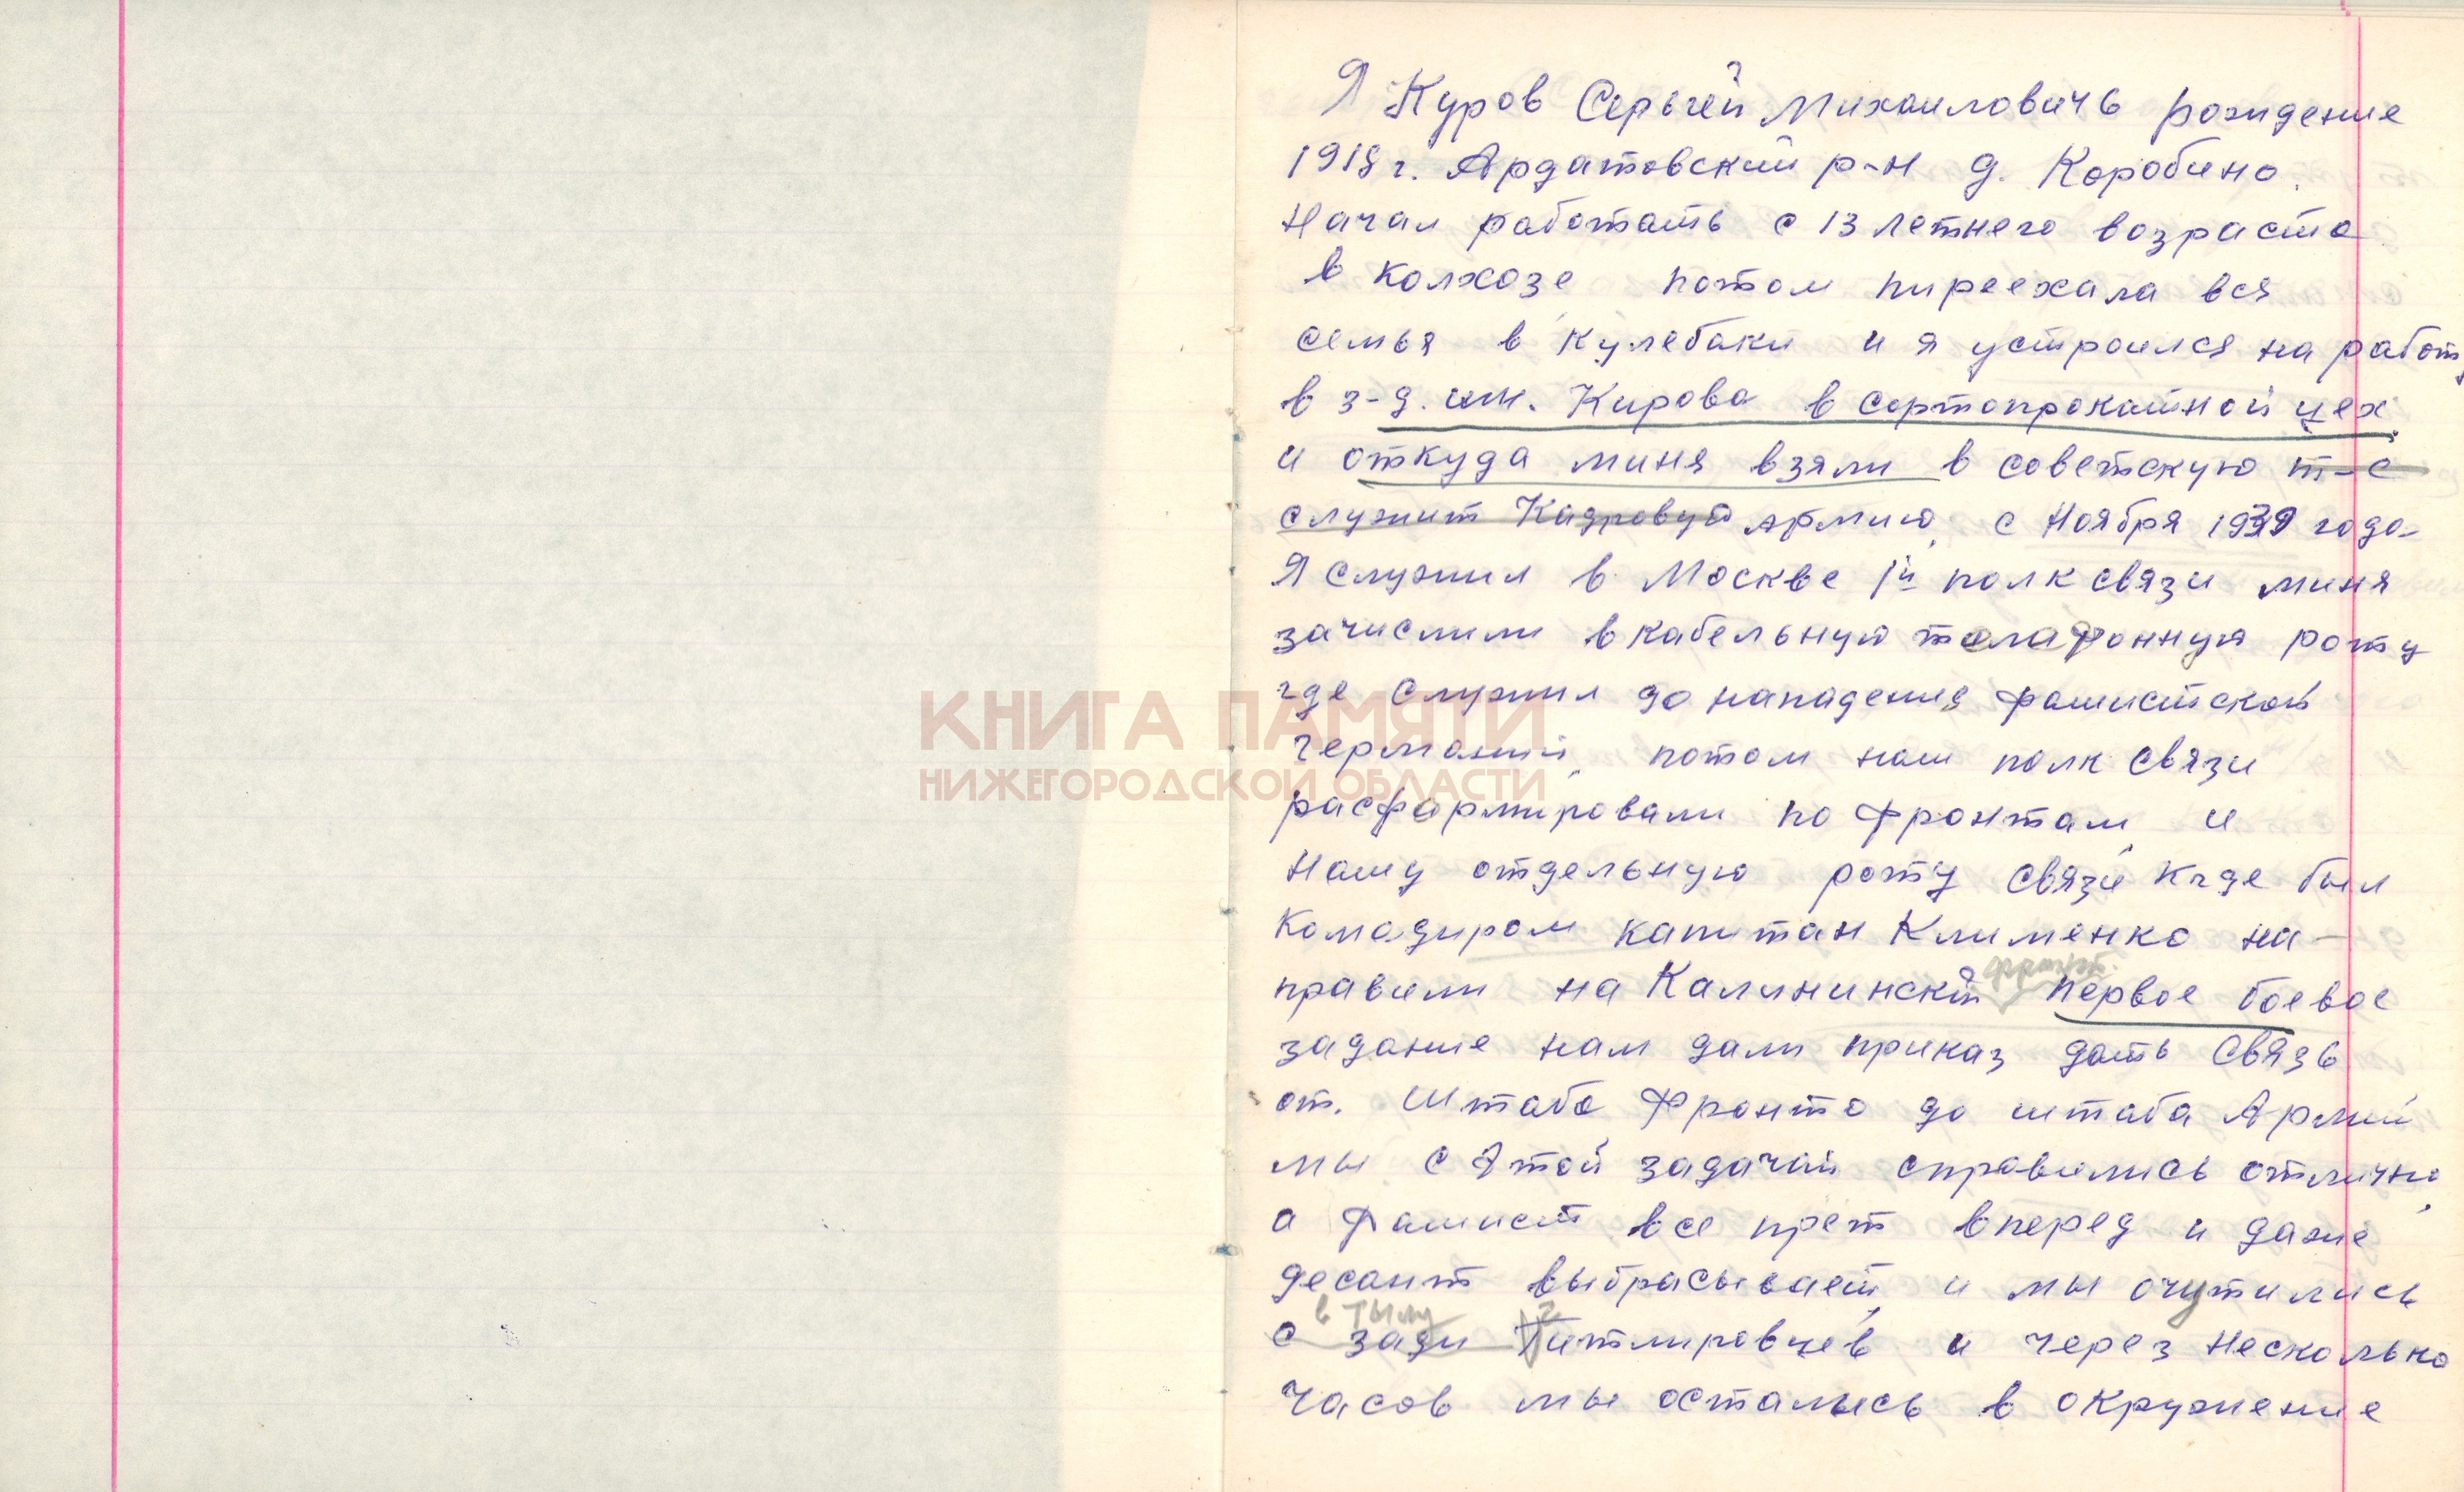 Я Куров Серьгей Михаиловичь рождение
1918 г. Ардатовский р-н д. Коробино.
Начал работать с 13 летнего возраста
в колхозе потом пиреехала вся
семья в Кулебаки и я устроился на работу
в з-д. им. Кирова в сортопрокатной цех
и откуда миня взяли в советскую т-с
служит Кадровую армию, с Ноября 1939 года
Я служил в Москве 1й полк связи миня
зачислили в кабельную телефонную роту
где служил до нападения фашистской
германий, потом наш полк связи
КНИГА ПАМЯТИ
НИЖЕГОРОДСКОЙ ОБЛАСТИ
расформировали по фронтам, и
Нашу отдельную роту связи кгде был
комадиром капитан Клименко на-
фронт.
правили на Калининский Первое боевое
задание нам дали приказ дать связь
от. Штаба Фронта до штаба Армий
мы с Этой задачай справились отлично,
а Фашист все прет вперед и даже
десант выбрасывает, и мы очутились
в тылу
с зади Гитлировцев и через Несколько
Часов мы остались в окружение